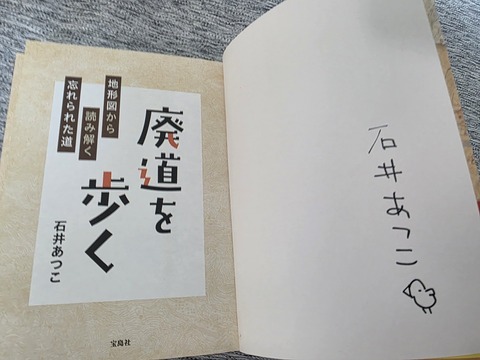 地形図から
読み解く
忘れられた道
廃道を
歩く
石井あつこ
宝島社
石井あつこ